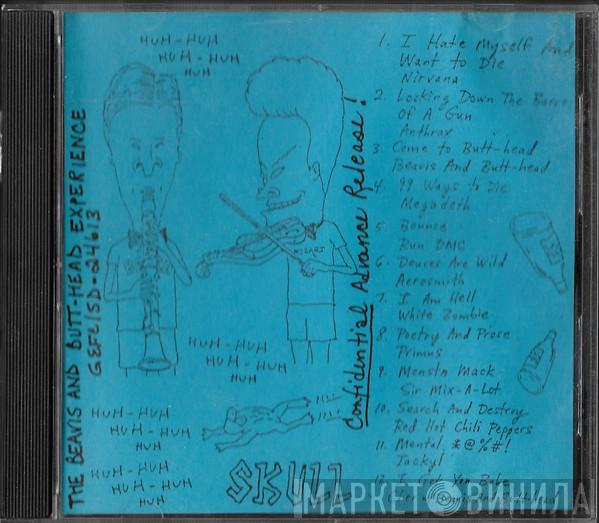 HUH-HUH
HUH-HUH
HUH
THE BEAVIS AND BUTT-HEAD EXPERIENCE
GEFC/SD-24613
MOZART
Confidential Advance Release!
HUH-HUH
HUH-HUH
HUH
HUH-HUH
HUH-HUH
HUH
HUH-HUH
HUH-HUH
HUH
1. I Hate Myself And
Want to Die
Nirvana
2. Looking Down The Barrel
Of A Gun
Anthrax
3. Come to Butt-head
Beavis And Butt-head
4. 99 Ways to Die
Megadeth
5. Bounce
Run DMC
6. Deuces Are Wild
Aerosmith
7. I Am Hell
White Zombie
8. Poetry And Prose
Primus
9. Monsta Mack
Sir Mix-A-Lot
10. Search And Destroy
Red Hot Chili Peppers
11. Mental, *@%#!
Jackyl
12. I Got You Babe
And Butt-head
МАРКЕТ ВИНИЛА